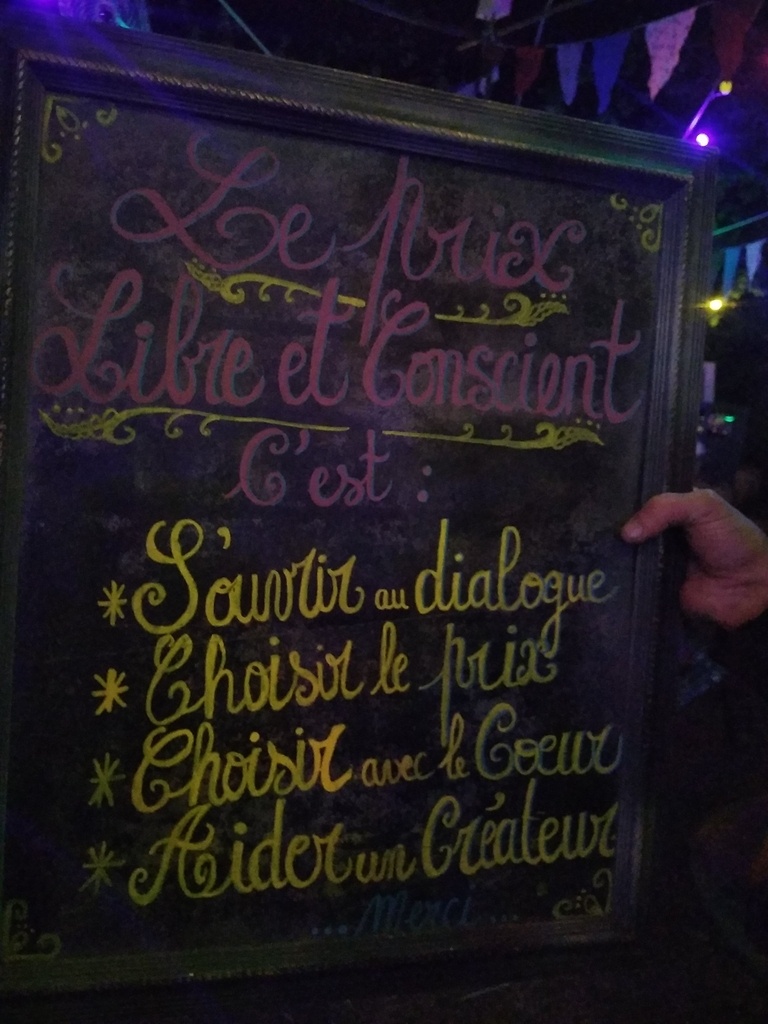 Le prix
Libre et Conscient
C'est :
* S'ouvrir au dialogue
* Choisir le prix
* Choisir avec le Coeur
* Aider un Créateur
... Merci ...